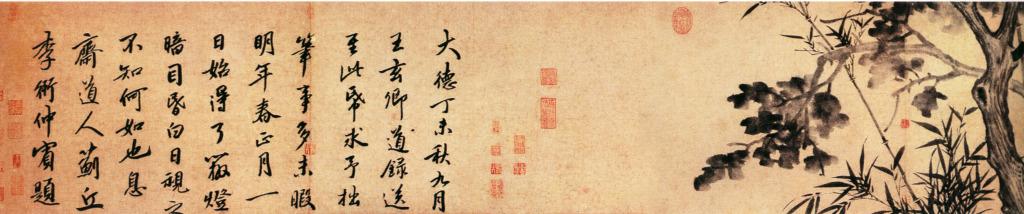 大德丁未秋九月
王玄卿道錄送
至此帋求予拙
筆事多未暇
明年春正月一
日始得了辦燈
暗目昏白日視之
不知何如也息
齋道人薊丘
李衎仲賓題